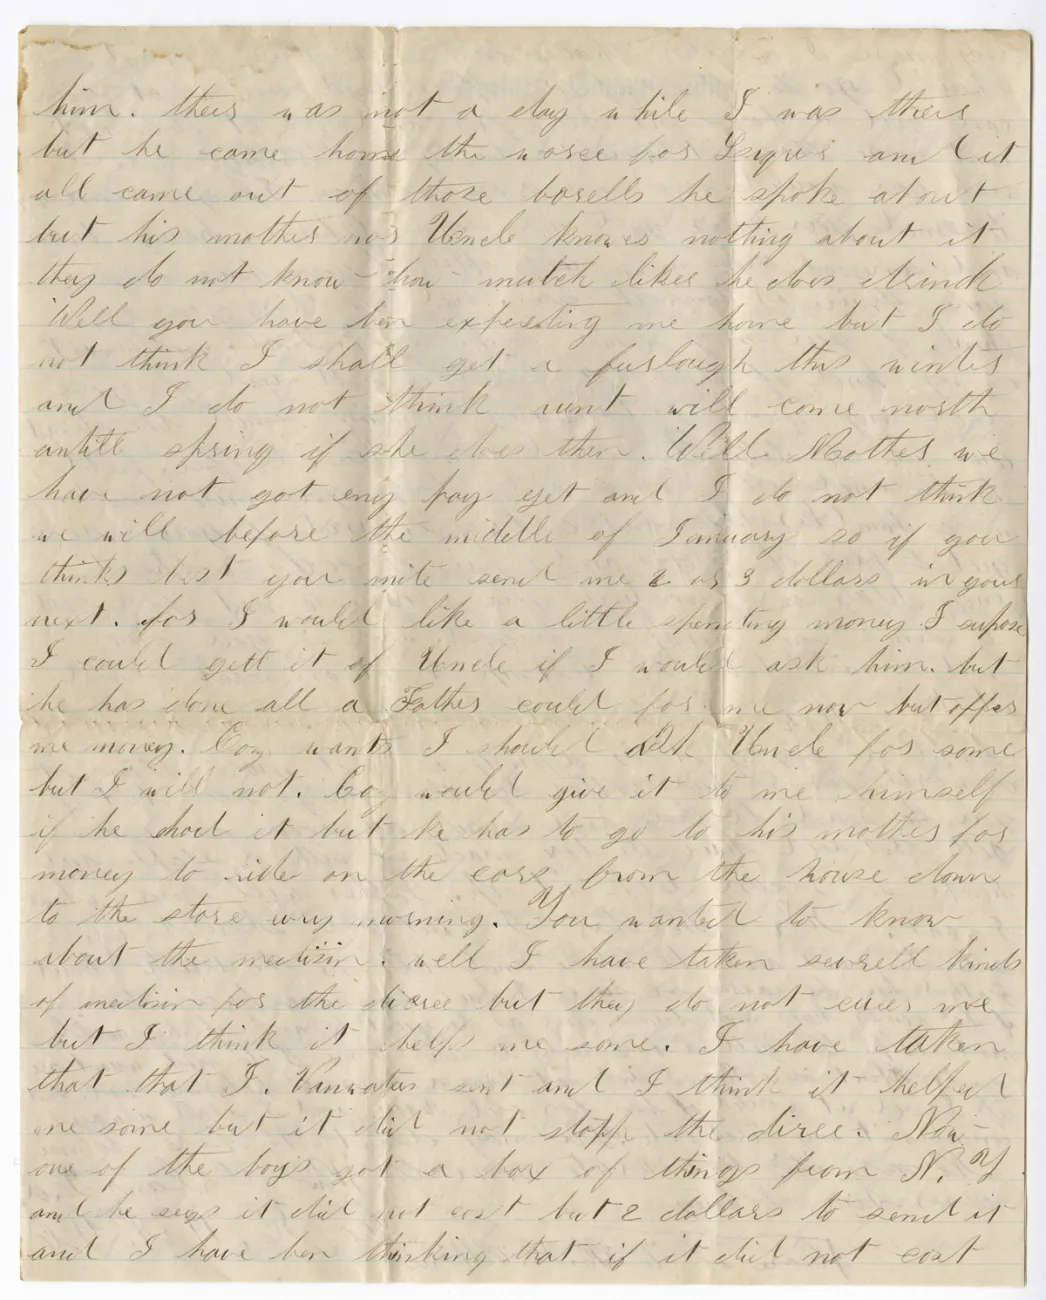 him. theer was not a day while I was theer
but he came home the worse for Liquer and it
all came out of those barells he spoke about
but his mother nor Uncle knowes nothing about it
they do not know how mutch liker he does drink
Well you have ben expecting me home but I do
not think I shall get a furlough this winter
and I do not think aunt will come north
untill spring if she does then. Well Mother we
have not got eny pay yet and I do not think
we will before the middle of January so if you
think best you mite send me 2 or 3 dollars in your
next. for I would like a little spending money I supose
I could gett it of Uncle if I would ask him. but
he has done all a Father could for me now but offer
me money. Coy wants I should ask Uncle for some
but I will not. Coy would give it to me himself
if he had it but he has to go to his mother for
money to ride on the cars from the house down
to the store evry morning. You wanted to know
about the medisin. well I have taken severell kinds
of medisin for the diree but they do not cuer me
but I think it helps me some. I have taken
that that J. Vanwater sent and I think it helped
me some but it did not stopp the diree. Now
one of the boys got a box of things from N. Y
and he says it did not cost but 2 dollars to send it
and I have ben thinking that if it did not cost